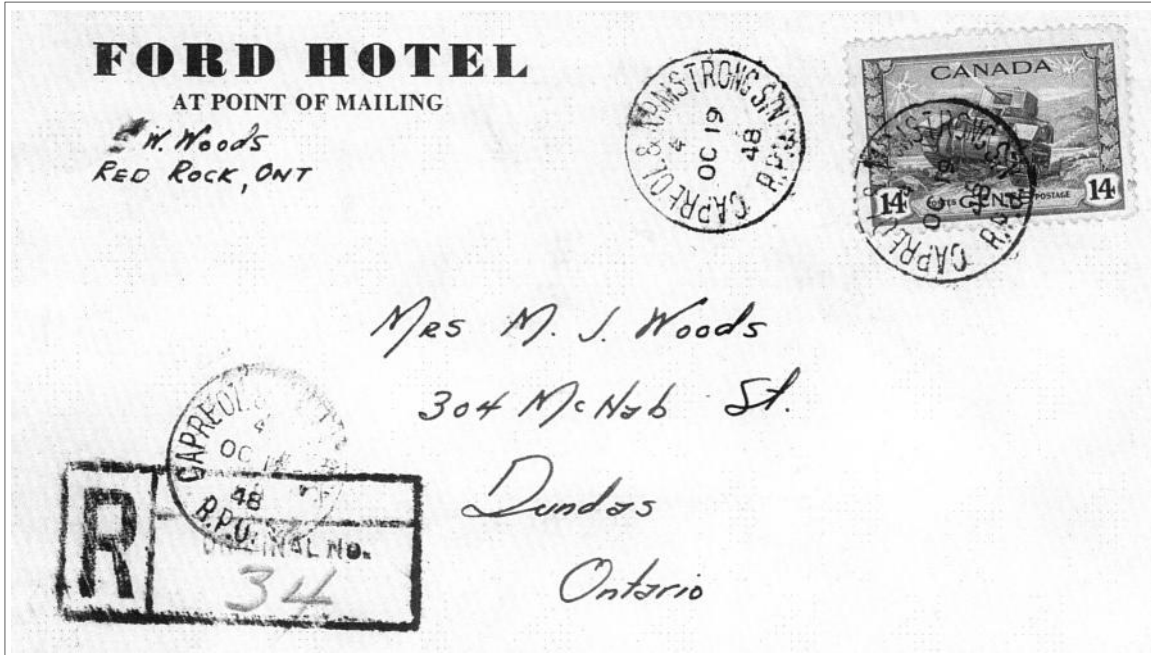 FORD HOTEL
AT POINT OF MAILING
W. Woods
RED ROCK, ONT
CAPREOL & ARMSTRONG ST'N. R.P.O.
4
OC 19
48
CANADA
14 CENTS POSTAGE 14
CAPREOL ARMSTRONG R.P.O.
OC
48
Mrs M. J. Woods
304 McNab St.
Dundas
Ontario
CAPREOL
OC
48
R.P.O.
R
ORIGINAL NO.
34